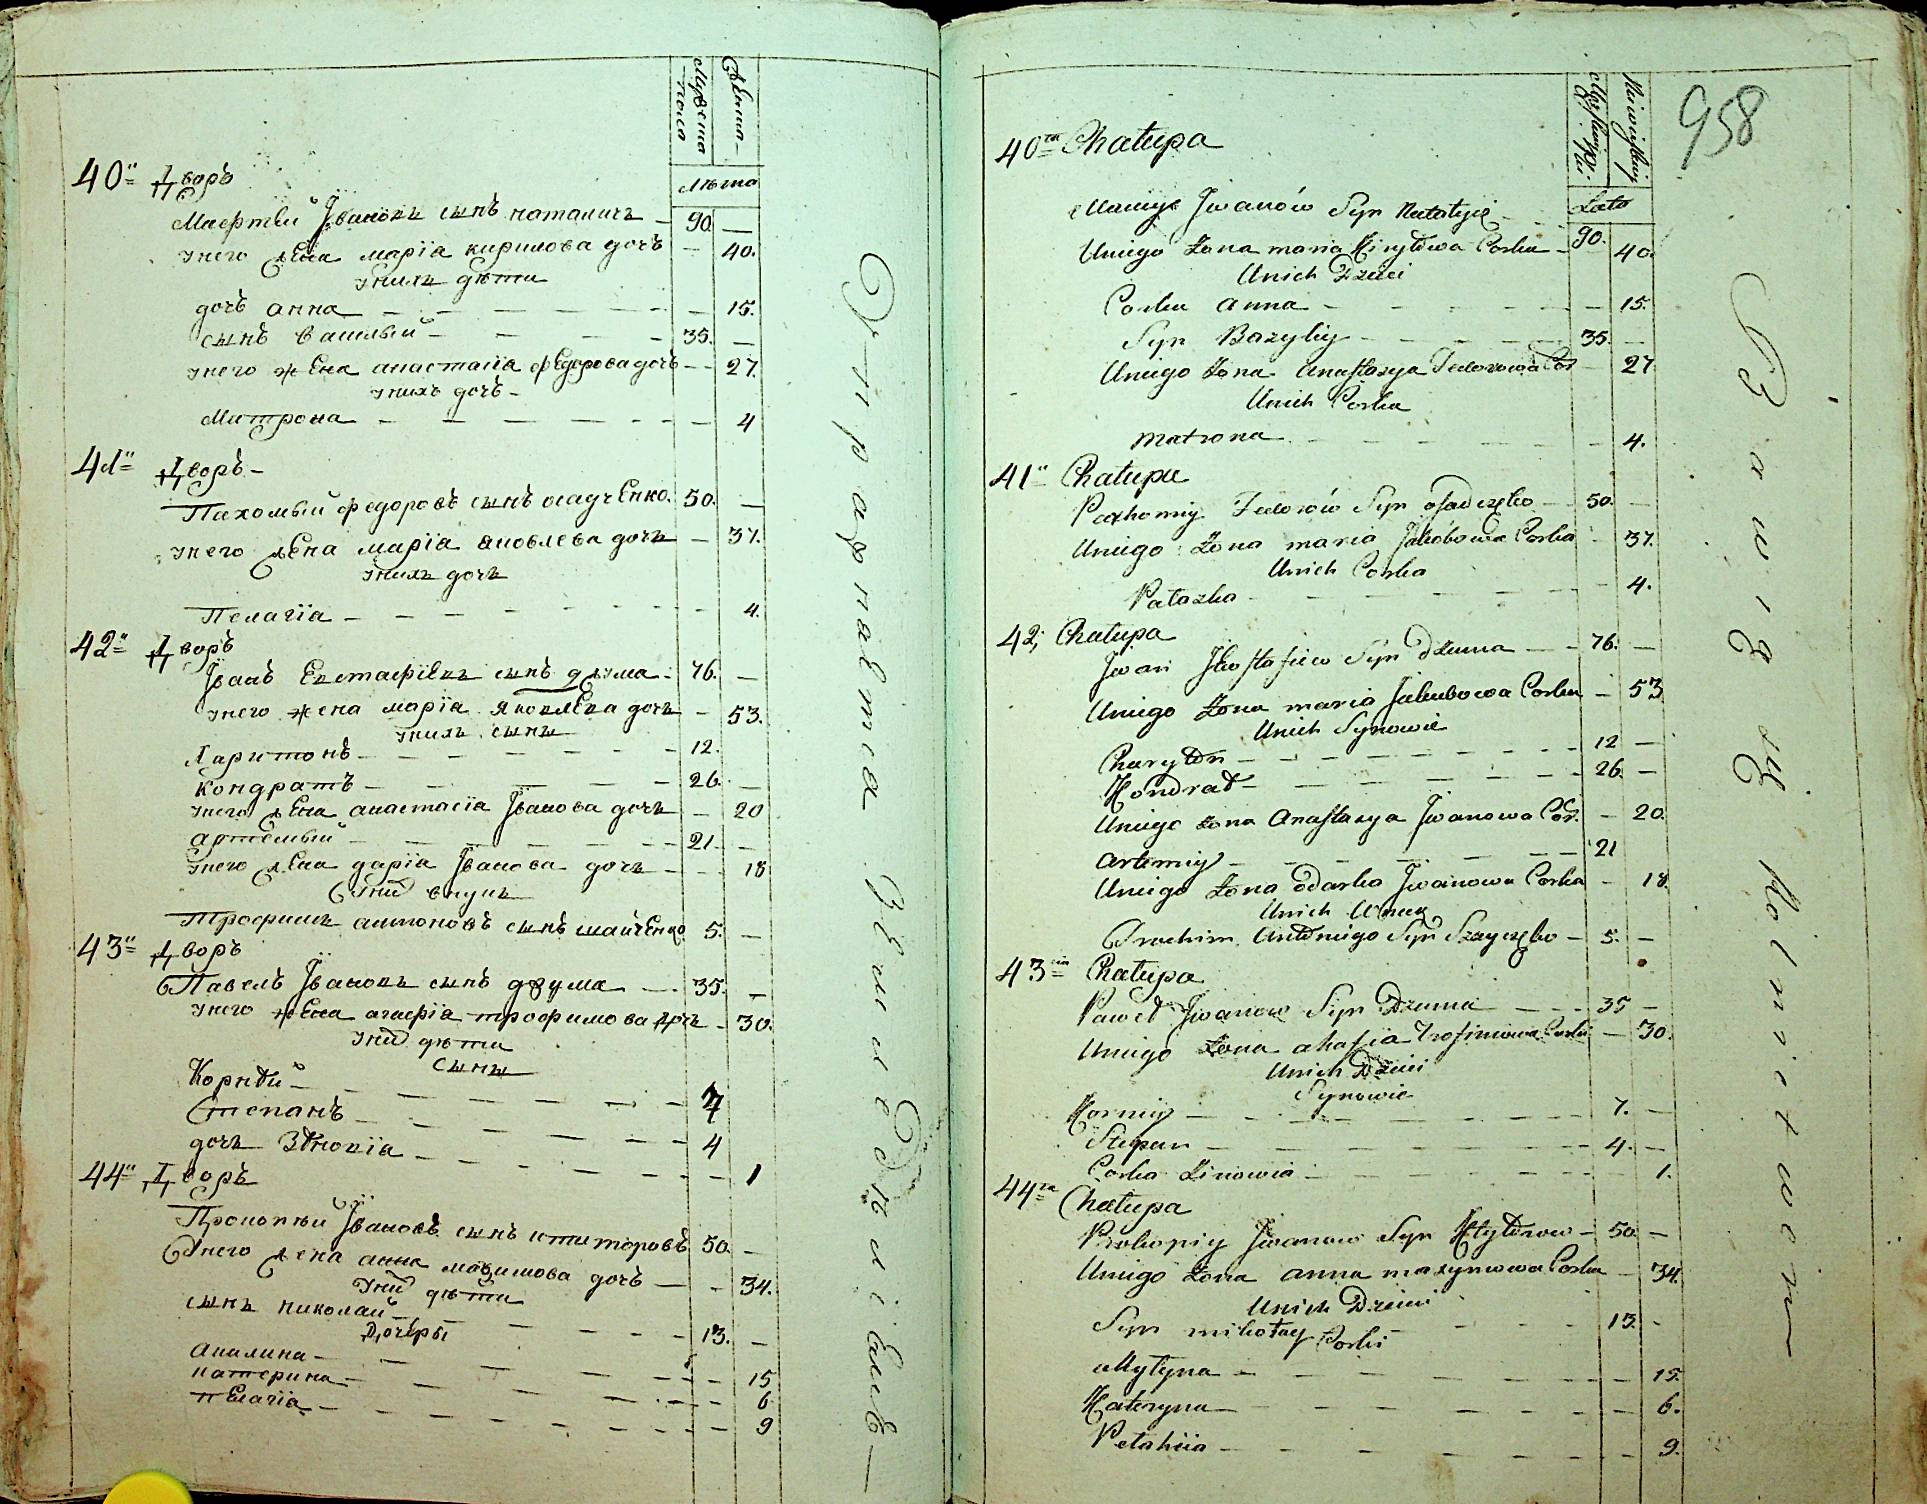 Мужеска пола
Женска
Лѣта
40й Дворъ
Матфѣй Їванов сынъ
90. —
у него жена марїя кирилова дочъ — 40.
у нихъ дѣти
дочъ анна — 15.
сынъ василый — 35. —
у него жена анастасїа федорова дочъ — 27.
у нихъ дочъ —
Матрона — 4
41й Дворъ —
Пахомый федоровъ сынъ осадчЕнко. 50. —
у него жена марїа яковлева дочъ — 37.
у нихъ дочъ
Пелагїа — 4.
42й Дворъ
Їванъ Евстафїевъ сынъ джума — 76. —
у него жена марїя яковлева дочъ — 53.
у нихъ сыны
Харитонъ — 12.
кондратъ — 26. —
у него жена анастасїа Їванова дочъ — 20
артемый — 21. —
у него жена дарїа Їванова дочъ — 18
у них внукъ
Трофимъ антоновъ сынъ 5. —
43й Дворъ
Павелъ Їванов сынъ джума — 35. —
у него жена агафїа трофимова дочъ — 30.
у них дѣти
сыны
Корнѣй — 7
Степанъ — 4
дочъ Зѣновїа — 1
44й Дворъ
Прокопый Ївановъ сынъ ктиторовъ 50. —
у него жена анна мазимова дочъ — 34.
у них дѣти
сынъ николай — 13. —
Дочеры
акилина — 15
катерина — 6
пелагїа — 9
Управляется Земледѣлїемъ —
958
Męskiej płci
Niewieskiej
Lata
40ta Chałupa
Iwanów Syn
90.
Uniego Żona maria Kiryłowa Corka — 40.
Unich Dzieci
Corka anna — 15.
Syn Bazyliy — 35. —
Uniego Żona Anastazya Fedorowa Cor — 27
Unich Corka
Matrona — 4.
41a Chałupa
Pachomiy Fedorów Syn osadczęko — 50. —
Uniego Żona maria Jakóbowa Corka — 37.
Unich Corka
Palazka — 4.
42; Chałupa
Jwan Jewstafiew Syn Dżuma — 76. —
Uniego Żona maria Jakubowa Corka — 53
Unich Synowie
Charyton — 12 —
Kondrat — 26. —
Uniego Żona Anastazya Jwanowa Cor. — 20.
Artemiy — 21
Uniego Żona Odarka Jwanowa Corka — 18.
Unich Wnuk
Trochim Antoniego Syn — 5. —
43cia Chałupa
Paweł Jwanow Syn Dżuma — 35 —
Uniego Żona ahafia Trofimowa Corka — 30.
Unich Dzieci
Synowie
Korniy — 7. —
Stepan — 4. —
Corka Zinowia — 1.
44ta Chałupa
Prokopiy Jwanow Syn Ktytorow — 50. —
Uniego Żona anna maxymowa Corka — 34.
Unich Dzieci
Syn mikołay — 13. —
Corki
Akylyna — 15.
Kateryna — 6.
Pelahia — 9.
Bawią się Rolnictwem